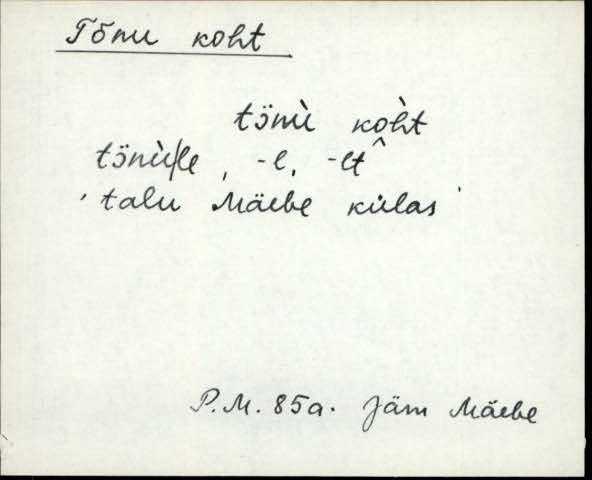 Tõnu koht
tö̀nù kòht
tönù/le, -l, -lt
'talu Mäebe külas'
P.M. 85a. Jäm Mäebe